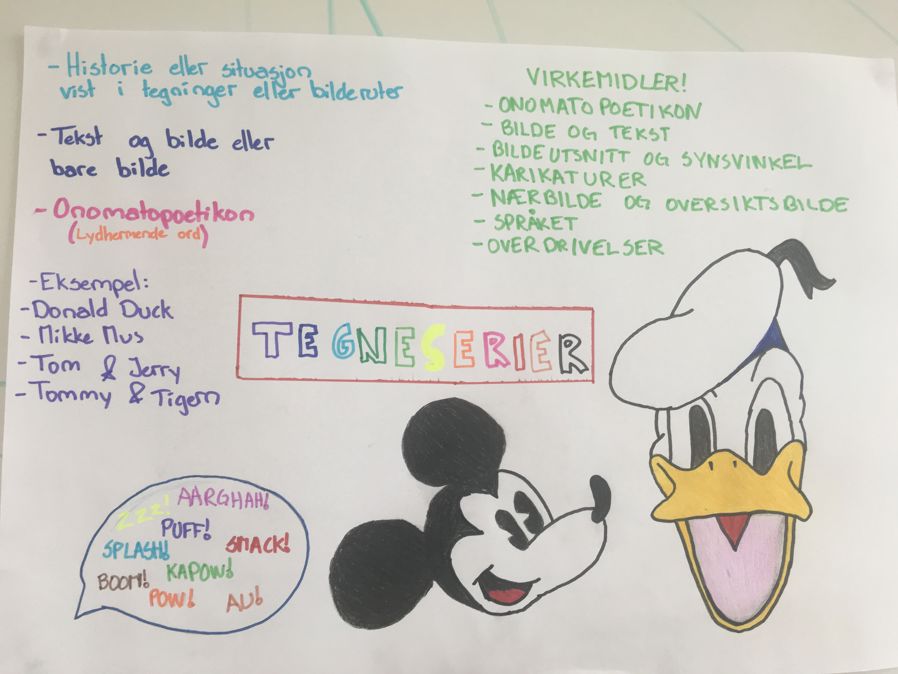 - Historie eller situasjon
vist i tegninger eller bilderuter
- Tekst og bilde eller
bare bilde
- Onomatopoetikon
(Lydhermende ord)
- Eksempel:
- Donald Duck
- Mikke Mus
- Tom & Jerry
- Tommy & Tigern
VIRKEMIDLER!
- ONOMATOPOETIKON
- BILDE OG TEKST
- BILDEUTSNITT OG SYNSVINKEL
- KARIKATURER
- NÆRBILDE OG OVERSIKTSBILDE
- SPRÅKET
- OVERDRIVELSER
TEGNESERIER
ZZZ! AARGHAH!
PUFF!
SPLASH! SMACK!
BOOM! KAPOW!
POW! AU!